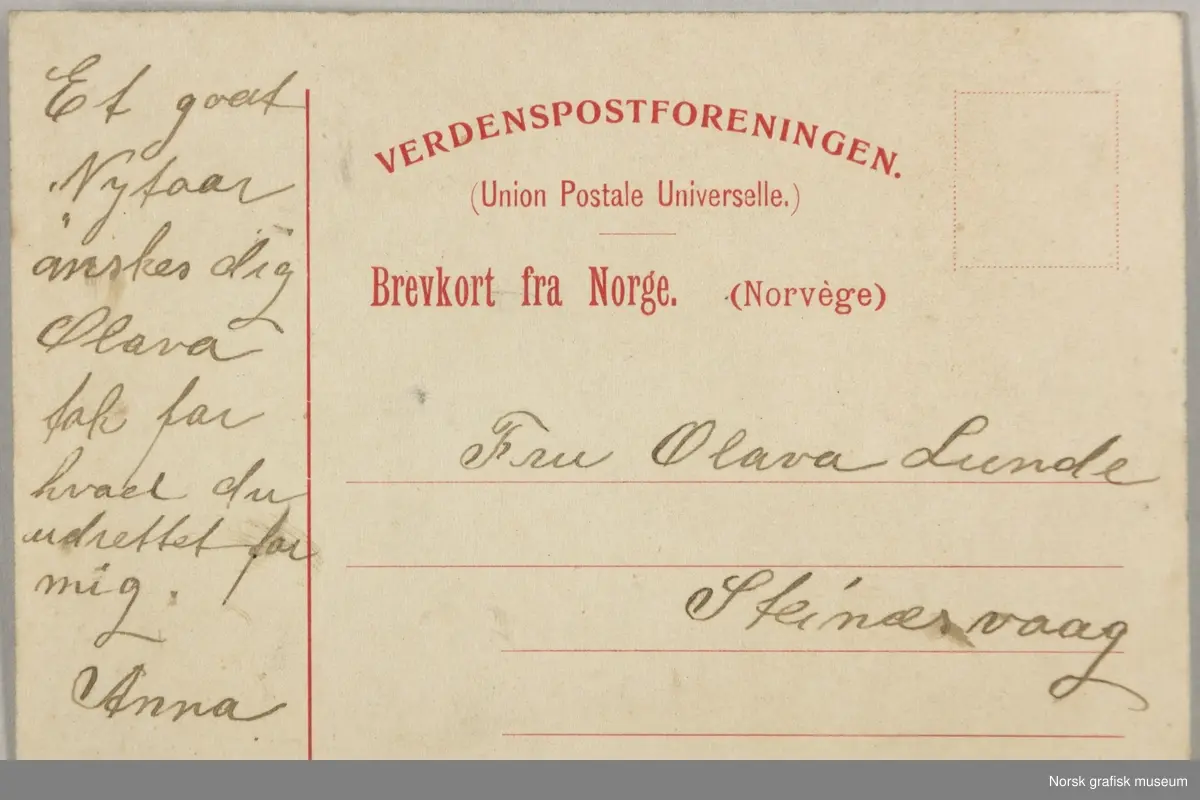 Et godt
Nytaar
ønskes dig
Olava
tak for
hvad du
udrettet for
mig.
Anna
VERDENSPOSTFORENINGEN.
(Union Postale Universelle.)
Brevkort fra Norge. (Norvège)
Fru Olava Lunde
Steinæsvaag
Norsk grafisk museum